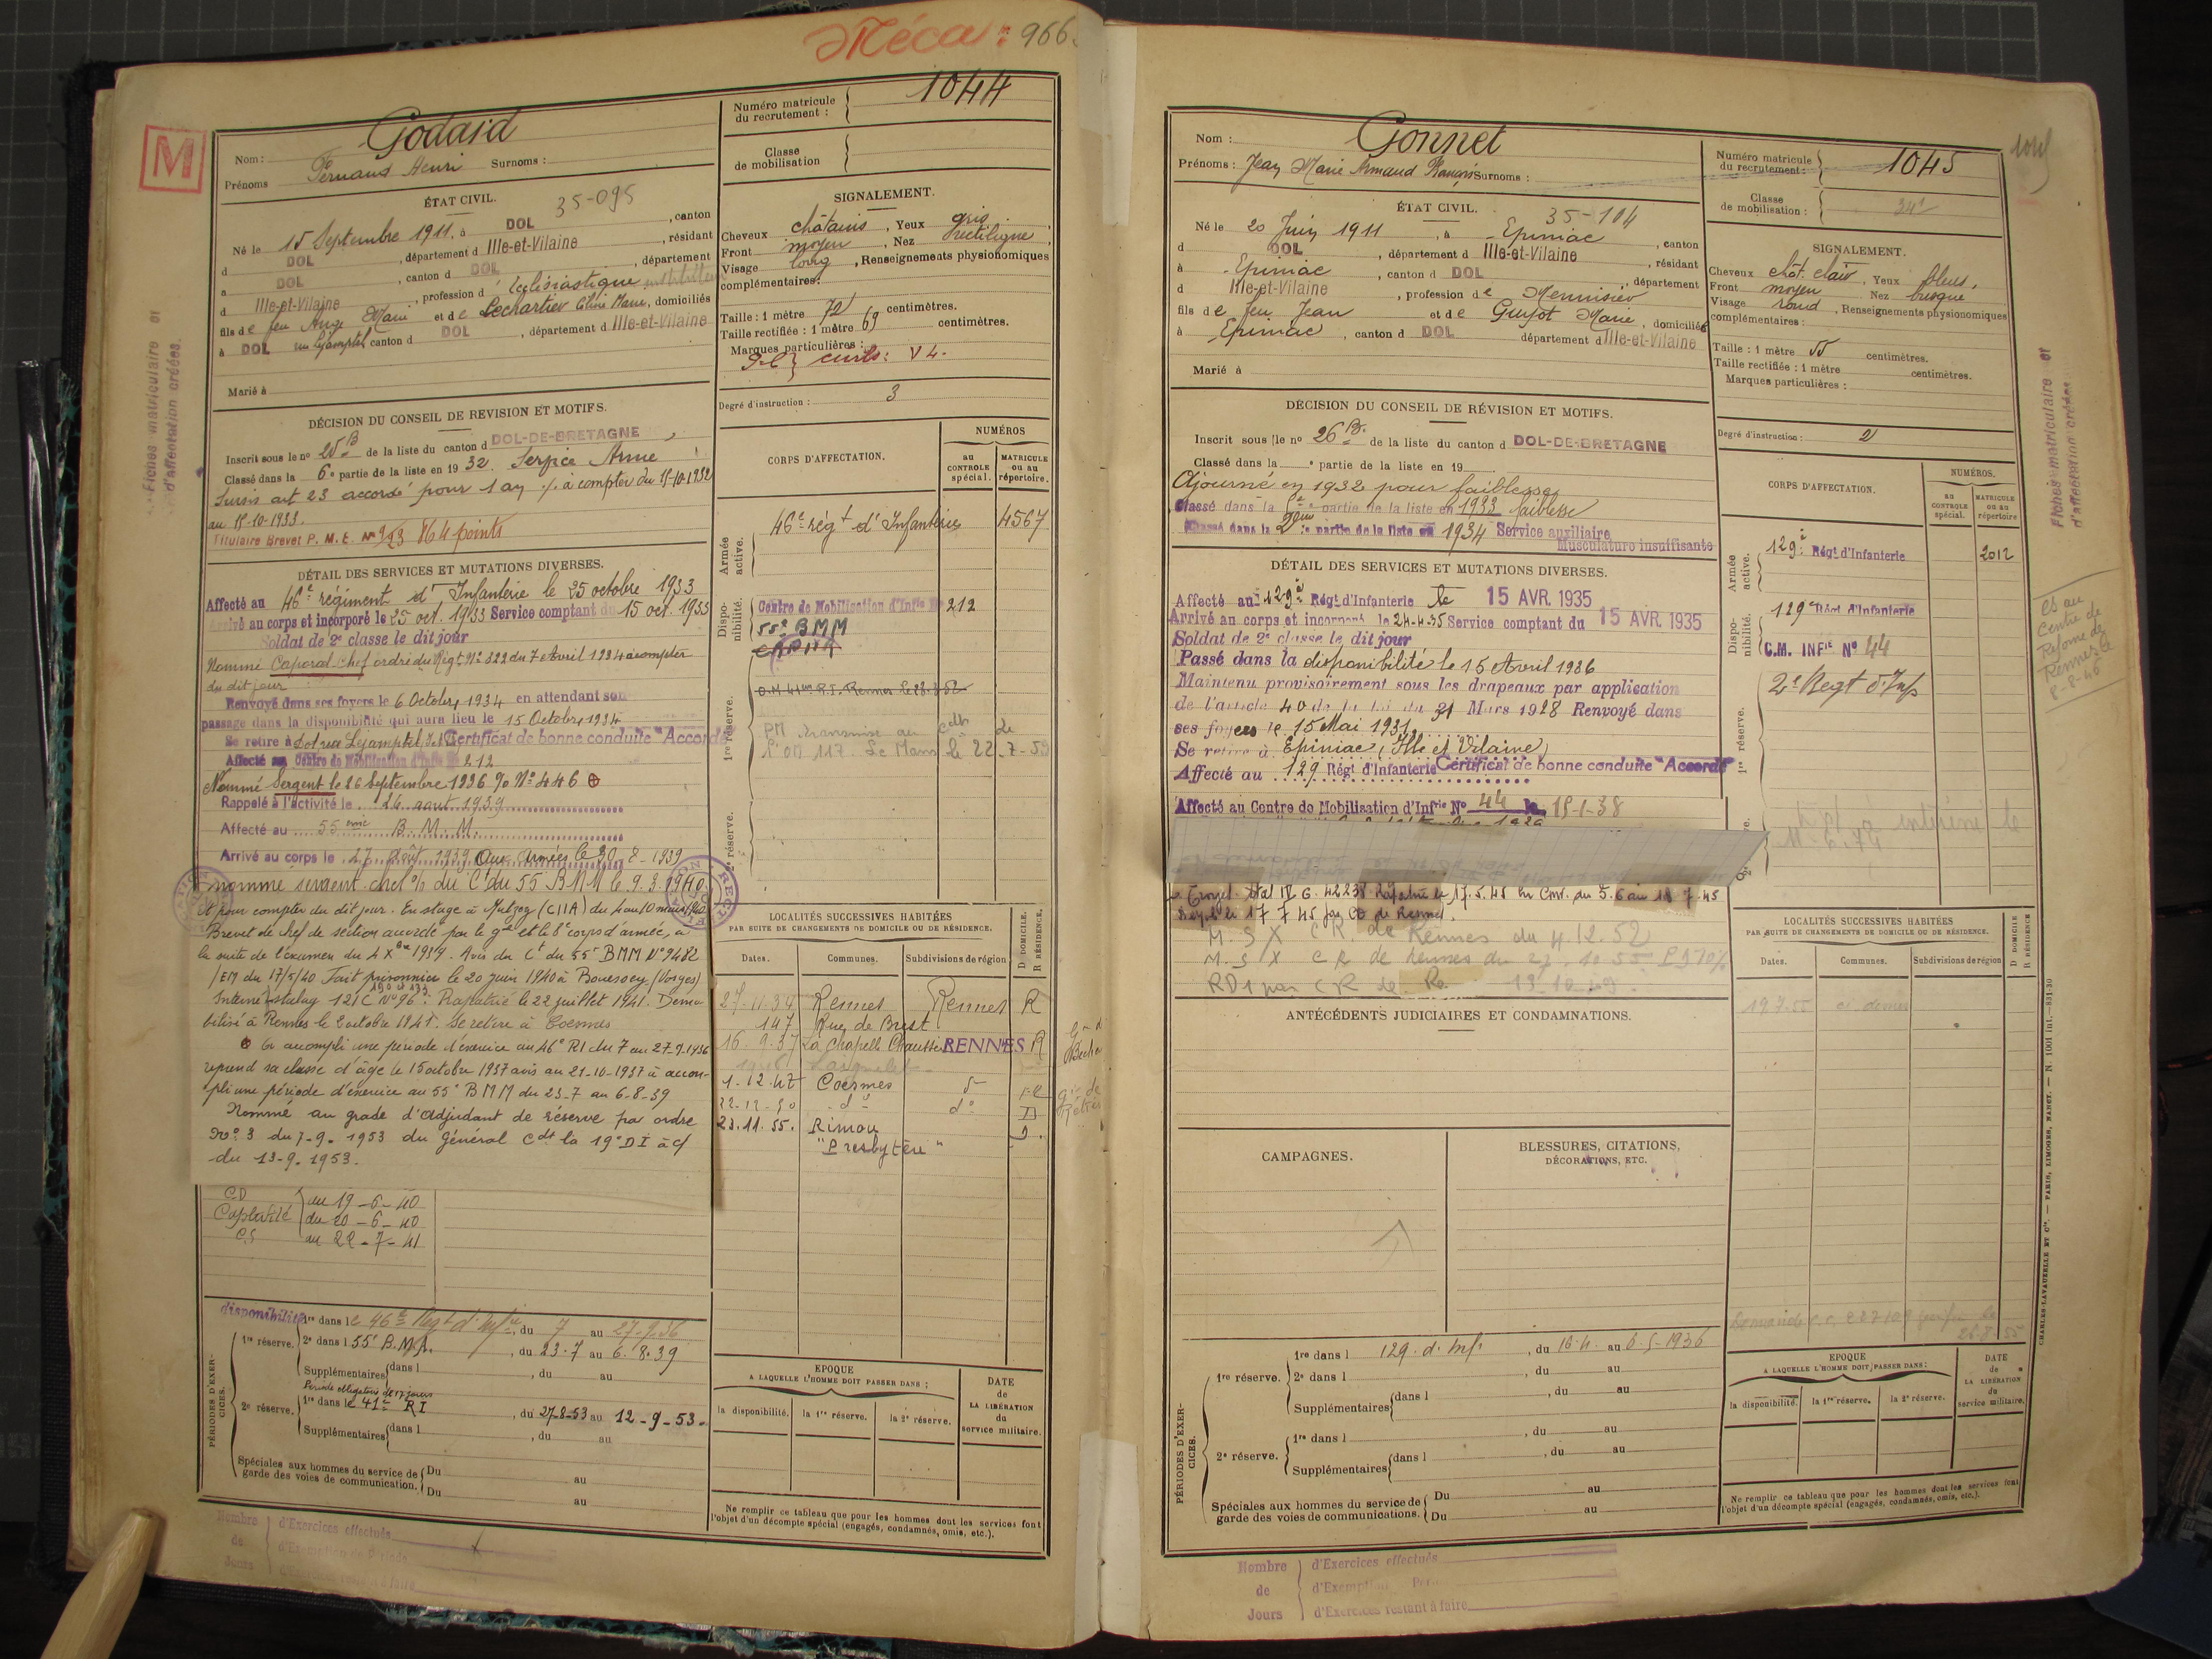 Méca : 966
1044
Numéro matricule
du recrutement :
Godard
Nom :
Prénoms Fernand Henri Surnoms :
M
Classe
de mobilisation
ÉTAT CIVIL.
35-095
Né le 15 Septembre 1911, à DOL, canton
d DOL, département d Ille-et-Vilaine, résidant
à DOL, canton d DOL, département
d Ille-et-Vilaine, profession d' Ecclésiastique
fils de feu Ange Marie et de Lechartier Céline Marie, domiciliés
à DOL rue Lejamptel canton d DOL, département d Ille-et-Vilaine
Marié à
SIGNALEMENT.
Cheveux châtains, Yeux gris
Front moyen, Nez rectiligne
Visage long, Renseignements physionomiques
complémentaires :
Taille : 1 mètre 72 centimètres.
Taille rectifiée : 1 mètre 69 centimètres.
Marques particulières :
V 4.
Degré d'instruction : 3
DÉCISION DU CONSEIL DE REVISION ET MOTIFS.
Inscrit sous le no 25 B de la liste du canton d DOL-DE-BRETAGNE
Classé dans la 6e partie de la liste en 1932. Service Armé
Sursis art 23 accordé pour 1 an à compter du 15-10-1932
au 15-10-1933.
Titulaire Brevet P. M. E. No 923 164 points
DÉTAIL DES SERVICES ET MUTATIONS DIVERSES.
Affecté au 46e régiment d'Infanterie le 25 octobre 1933
Arrivé au corps et incorporé le 25 oct. 1933 Service comptant du 15 oct. 1933
Soldat de 2e classe le dit jour
Nommé Caporal-Chef ordre du Régt No 322 du 7 Avril 1934 à compter
du dit jour
Renvoyé dans ses foyers le 6 Octobre 1934 en attendant son
passage dans la disponibilité qui aura lieu le 15 Octobre 1934
Se retire à Dol rue Lejamptel, Certificat de bonne conduite "Accordé
Affecté au Centre de Mobilisation d'Infie No 212
Nommé Sergent le 26 Septembre 1936 No 446
Rappelé à l'activité le 26 aout 1939
Affecté au 55eme B. M. M.
Arrivé au corps le 27 Août 1939 Aux Armées le 30-8-1939
nommé sergent chef % du Ct du 55 BMM le 9.3.1940
et pour compter du dit jour. En stage à Mutzog (CIIA) du 4 au 10 mars 1940
Brevet de chef de section accordé par le gal et le 8e corps d'armée, à
la suite de l'examen du 4 Xbre 1939. Avis du Ct du 55e BMM No 9482
/EM du 17/5/40 Fait prisonnier le 20 juin 1940 à Bouessey (Vosges)
Interné stalag 121C No 96 : Rapatrié le 22 juillet 1941. Démo-
bilisé à Rennes le 2 octobre 1941. Se retire à Coesmes
a accompli une période d'exercice au 46e RI du 7 au 27-9-1936
reprend sa classe d'âge le 15 octobre 1937 avis du 21-10-1937 à accom-
pli une période d'exercice au 55e BMM du 23-7 au 6-8-39
Nommé au grade d'Adjudant de réserve par ordre
No 3 du 7-9-1953 du Général Cdt la 19e DI à c/
du 13-9-1953.
CD au 19-6-40
Captivité du 20-6-40
CS au 22-7-41
CORPS D'AFFECTATION.
NUMÉROS
au CONTROLE spécial.
MATRICULE ou au répertoire.
Armée active.
46e régt d'Infanterie 4567
Disponibilité.
Centre de Mobilisation d'Infie No 212
55e BMM
1re réserve.
O.M 41me R.I. Rennes
PM transmise au Cdt de
l'OM 117 Le Mans le 22-7-59
2e réserve.
LOCALITÉS SUCCESSIVES HABITÉES
PAR SUITE DE CHANGEMENTS DE DOMICILE OU DE RÉSIDENCE.
Dates. Communes. Subdivisions de région D DOMICILE. R RÉSIDENCE.
27-11-34 Rennes Rennes R
147 Rue de Brest
16.9.37 La Chapelle Chaussée RENNES R
1-12-42 Coesmes
22-12-50 d° d° D
23.11.55. Rimou D.
"Presbytère"
PÉRIODES D'EXERCICES.
disponibilité 1re dans le 46e Regt d'Infie, du 7 au 27.9.36
1re réserve. 2e dans l 55e B.M.M., du 23-7 au 6.8.39
Supplémentaires dans l , du au
Période obligatoire de 17 jours
2e réserve. 1re dans le 41e RI, du 27-8-53 au 12-9-53.
Supplémentaires dans l , du au
Spéciales aux hommes du service de garde des voies de communication. Du au
Du au
EPOQUE
A LAQUELLE L'HOMME DOIT PASSER DANS :
la disponibilité. la 1re réserve. la 2e réserve.
DATE de LA LIBÉRATION du service militaire.
Ne remplir ce tableau que pour les hommes dont les services font
l'objet d'un décompte spécial (engagés, condamnés, omis, etc.).
Nombre de Jours
d'Exercices effectués
d'Exemption de Période
à faire
Fiches matriculaire et
d'affectation créées.
Nom : Gonnet
Prénoms : Jean Marie Armand François Surnoms :
Numéro matricule
du recrutement : 1045
Classe
de mobilisation :
ÉTAT CIVIL.
35-104
Né le 20 Juin 1911, à Epiniac, canton
d DOL, département d Ille-et-Vilaine, résidant
à Epiniac, canton d DOL, département
d Ille-et-Vilaine, profession de Menuisier
fils de feu Jean et de Guyot Marie, domiciliés
à Epiniac, canton d DOL département d Ille-et-Vilaine
Marié à
SIGNALEMENT.
Cheveux chât. clair, Yeux bleus,
Front moyen Nez busqué
Visage rond, Renseignements physionomiques
complémentaires :
Taille : 1 mètre 55 centimètres.
Taille rectifiée : 1 mètre centimètres.
Marques particulières :
Degré d'instruction : 2
DÉCISION DU CONSEIL DE RÉVISION ET MOTIFS.
Inscrit sous le no 26 B. de la liste du canton d DOL-DE-BRETAGNE
Classé dans la e partie de la liste en 19
Ajourné en 1932 pour faiblesse
Classé dans la 5e partie de la liste en 1933 faiblesse
Classé dans la 2eme partie de la liste en 1934 Service auxiliaire
Musculature insuffisante
DÉTAIL DES SERVICES ET MUTATIONS DIVERSES.
Affecté au 129e Régt d'Infanterie le 15 AVR. 1935
Arrivé au corps et incorporé le 24-4-35 Service comptant du 15 AVR. 1935
Soldat de 2e classe le dit jour
Passé dans la disponibilité le 15 Avril 1936
Maintenu provisoirement sous les drapeaux par application
de l'article 40 de la loi du 31 Mars 1928 Renvoyé dans
ses foyers le 15 Mai 1936
Se retire à Epiniac (Ille et Vilaine)
Affecté au 129 Régt d'Infanterie Certificat de bonne conduite "Accordé"
Affecté au Centre de Mobilisation d'Infrie No 44 le 15-1-38
Rapatrié le 17.5.45
M. S X C R. de Rennes du 4.12.52
M. S X C R de Rennes du 27-10 55
RD1 par CR de Re. 13.10.49.
ANTÉCÉDENTS JUDICIAIRES ET CONDAMNATIONS.
CAMPAGNES.
BLESSURES, CITATIONS,
DÉCORATIONS, ETC.
CORPS D'AFFECTATION.
NUMÉROS.
au CONTROLE spécial.
MATRICULE ou au répertoire
Armée active.
129e Régt d'Infanterie 2012
Disponibilité.
129e Régt d'Infanterie
C.M. INFie No 44
1re réserve.
2e Regt d'Inf
cs au
Centre de
Réforme de
Rennes le
8-8-46
LOCALITÉS SUCCESSIVES HABITÉES
PAR SUITE DE CHANGEMENTS DE DOMICILE OU DE RÉSIDENCE.
Dates. Communes. Subdivisions de région D DOMICILE R RÉSIDENCE
PÉRIODES D'EXERCICES.
1re réserve. 1re dans l 129. d'Inf., du 16-4 au 6-5-1936
2e dans l , du au
Supplémentaires dans l , du au
2e réserve. 1re dans l , du au
Supplémentaires dans l , du au
Spéciales aux hommes du service de garde des voies de communications. Du au
Du au
EPOQUE
A LAQUELLE L'HOMME DOIT PASSER DANS :
la disponibilité. la 1re réserve. la 2e réserve.
DATE de LA LIBÉRATION du service militaire.
Ne remplir ce tableau que pour les hommes dont les services font
l'objet d'un décompte spécial (engagés, condamnés, omis, etc.).
Nombre de Jours
d'Exercices effectués
d'Exemption
d'Exercices restant à faire
Fiches matriculaire et
d'affectation créées
CHARLES-LAVAUZELLE ET Cie. — PARIS, LIMOGES, NANCY. — N. 1001 int.—831-30